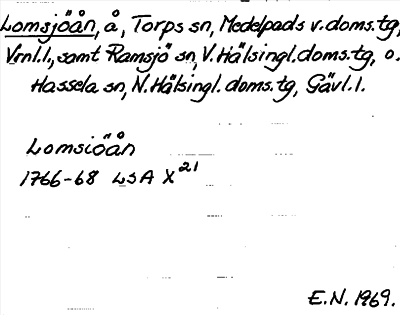 Lomsjöån, å, Torps sn, Medelpads v. doms.tg,
Vrnl.l., samt Ramsjö sn, V. Hälsingl. doms.tg, o.
Hassela sn, N. Hälsingl. doms.tg, Gävl. l.
Lomsiöån
1766-68 LSA X²¹
E.N. 1969.